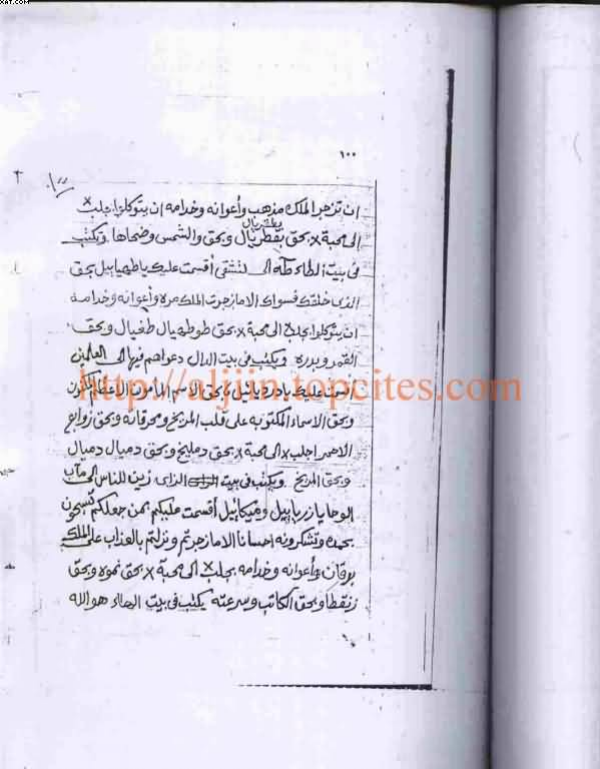 XAT.COM
١٠٠
ان تزجر الملك مذهب وأعوانه وخدامه ان يتوكلوا بجلب x
الى محبة x بحق بقطريال وبحق والشمس وضحاها. ويكتب
فى بيت الطاء طه الى لتشقى أقسمت عليك يا طهيايل بحق
الذى خلقك فسواك الاما زجرت الملك مره وأعوانه وخدامه
ان يتوكلوا بجلب الى محبة x بحق طوطهيال طغيال وبحق
القمر وبدره ويكتب فى بيت الدال دعواهم فيها الى العالمين
http://aljiin.topcites.com
وبحق الاسماء المكتوبه على قلب المريخ ومحرقاته وبحق زوابع
الاحمر اجلب x الى محبة x بحق دمليخ وبحق دميال دميال
وبحق المريخ ويكتب فى بيت الزاى زين للناس الى مآب
الوحا يا زرياييل وميكائيل أقسمت عليكم بمن جعلكم تسبحون
بحمده وتشكرونه احسانا الاما زجرتم ونزلتم بالعذاب على الملك
برقان وأعوانه وخدامه بجلب x الى محبة x بحق نموه وبحق
زنقطا وبحق الكاتب وسرعته يكتب فى بيت الهاء هو الله